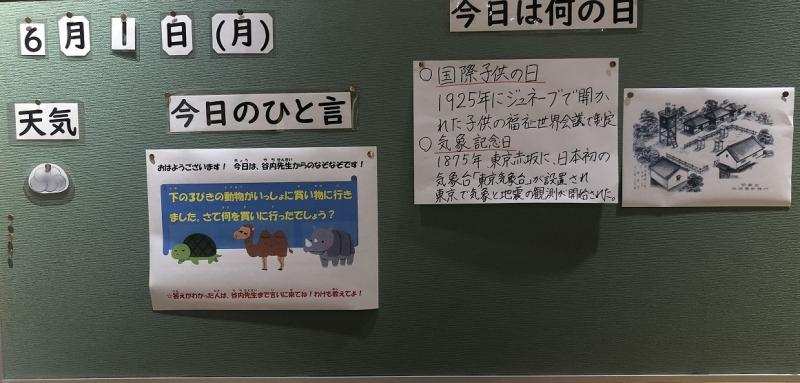 6月1日(月)
今日は何の日
天気
今日のひと言
おはようございます！ 今日は、谷内先生からのなぞなぞです！
下の3びきの動物がいっしょに買い物に行き
ました。さて何を買いに行ったでしょう？
☆答えがわかった人は、谷内先生まで言いに来てね！わけも教えてよ！
○国際子供の日
1925年にジュネーブで開か
れた子供の福祉世界会議で制定
○気象記念日
1875年、東京赤坂に、日本初の
気象台「東京気象台」が設置され
東京で気象と地震の観測が開始された。